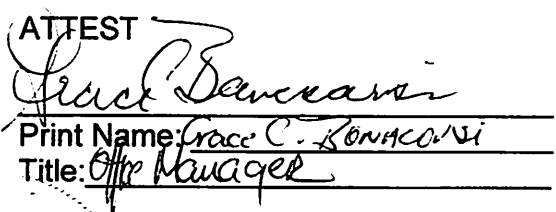 ATTEST
Grace C Bonacorsi
Print Name: Grace C. BONACORSI
Title: Office Manager